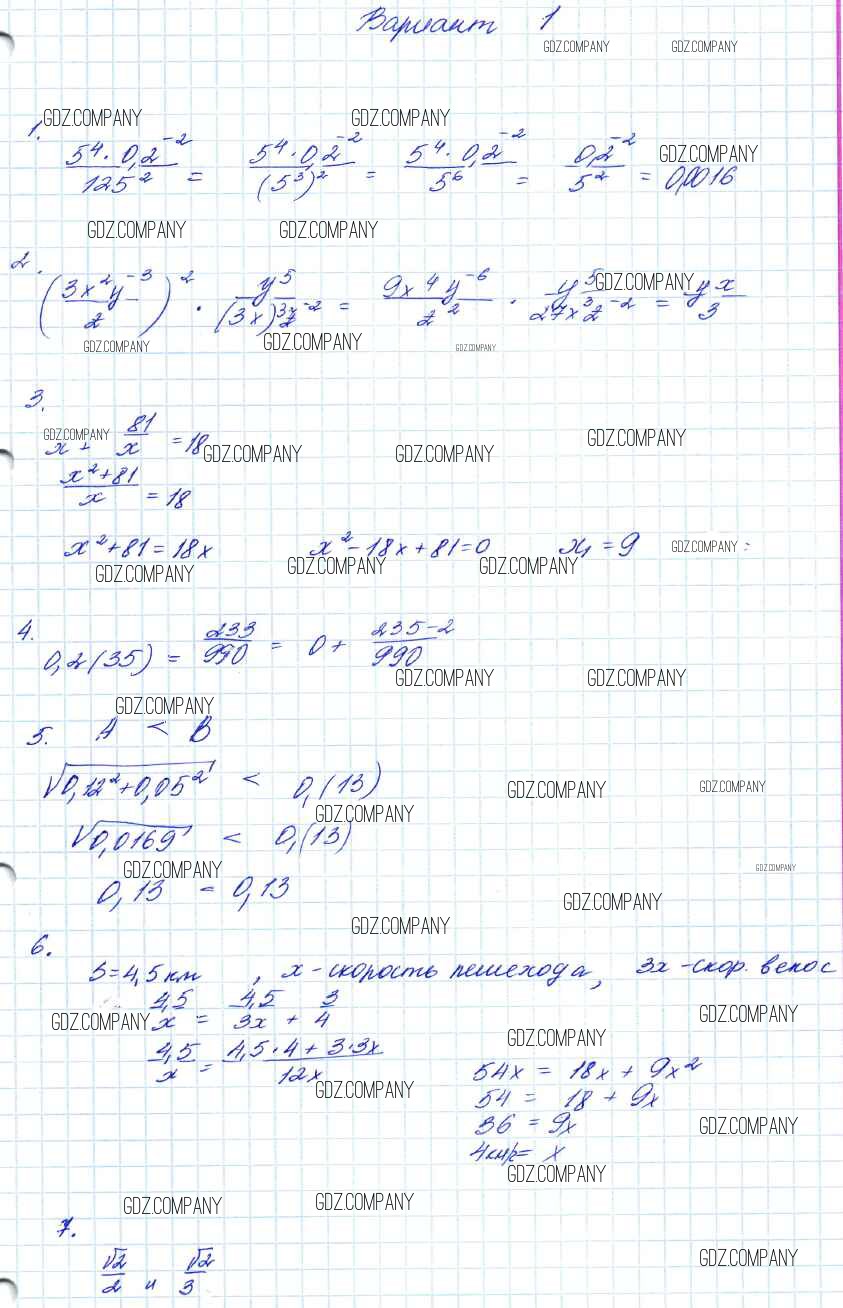 Вариант 1
GDZ.COMPANY GDZ.COMPANY
1. GDZ.COMPANY GDZ.COMPANY
5⁴·0,2⁻²/125² = 5⁴·0,2⁻²/(5³)² = 5⁴·0,2⁻²/5⁶ = 0,2⁻²/5² = 0,0016 GDZ.COMPANY
GDZ.COMPANY GDZ.COMPANY
2. (3x²y⁻³/z)² · y⁵/(3x)³z⁻² = 9x⁴y⁻⁶/z² · y⁵/27x³z⁻² = yx/3 GDZ.COMPANY
GDZ.COMPANY GDZ.COMPANY GDZ.COMPANY
3.
GDZ.COMPANY
x + 81/x = 18 GDZ.COMPANY GDZ.COMPANY GDZ.COMPANY
x²+81/x = 18
x²+81=18x x²-18x+81=0 x₁=9 GDZ.COMPANY
GDZ.COMPANY GDZ.COMPANY GDZ.COMPANY
4. 0,2(35) = 233/990 = 0 + 235-2/990
GDZ.COMPANY GDZ.COMPANY
GDZ.COMPANY
5. A < B
√0,12²+0,05² < 0,(13) GDZ.COMPANY GDZ.COMPANY
GDZ.COMPANY
√0,0169 < 0,(13)
GDZ.COMPANY GDZ.COMPANY
0,13 = 0,13 GDZ.COMPANY
GDZ.COMPANY
6. S=4,5 км, x-скорость пешехода, 3x-скор. велос
GDZ.COMPANY 4,5/x = 4,5/3x + 3/4 GDZ.COMPANY
GDZ.COMPANY
4,5/x = 4,5·4+3·3x/12x
GDZ.COMPANY
54x = 18x + 9x²
54 = 18 + 9x
36 = 9x GDZ.COMPANY
4км/ч= x
GDZ.COMPANY
GDZ.COMPANY GDZ.COMPANY
7.
√2/2 и √2/3 GDZ.COMPANY